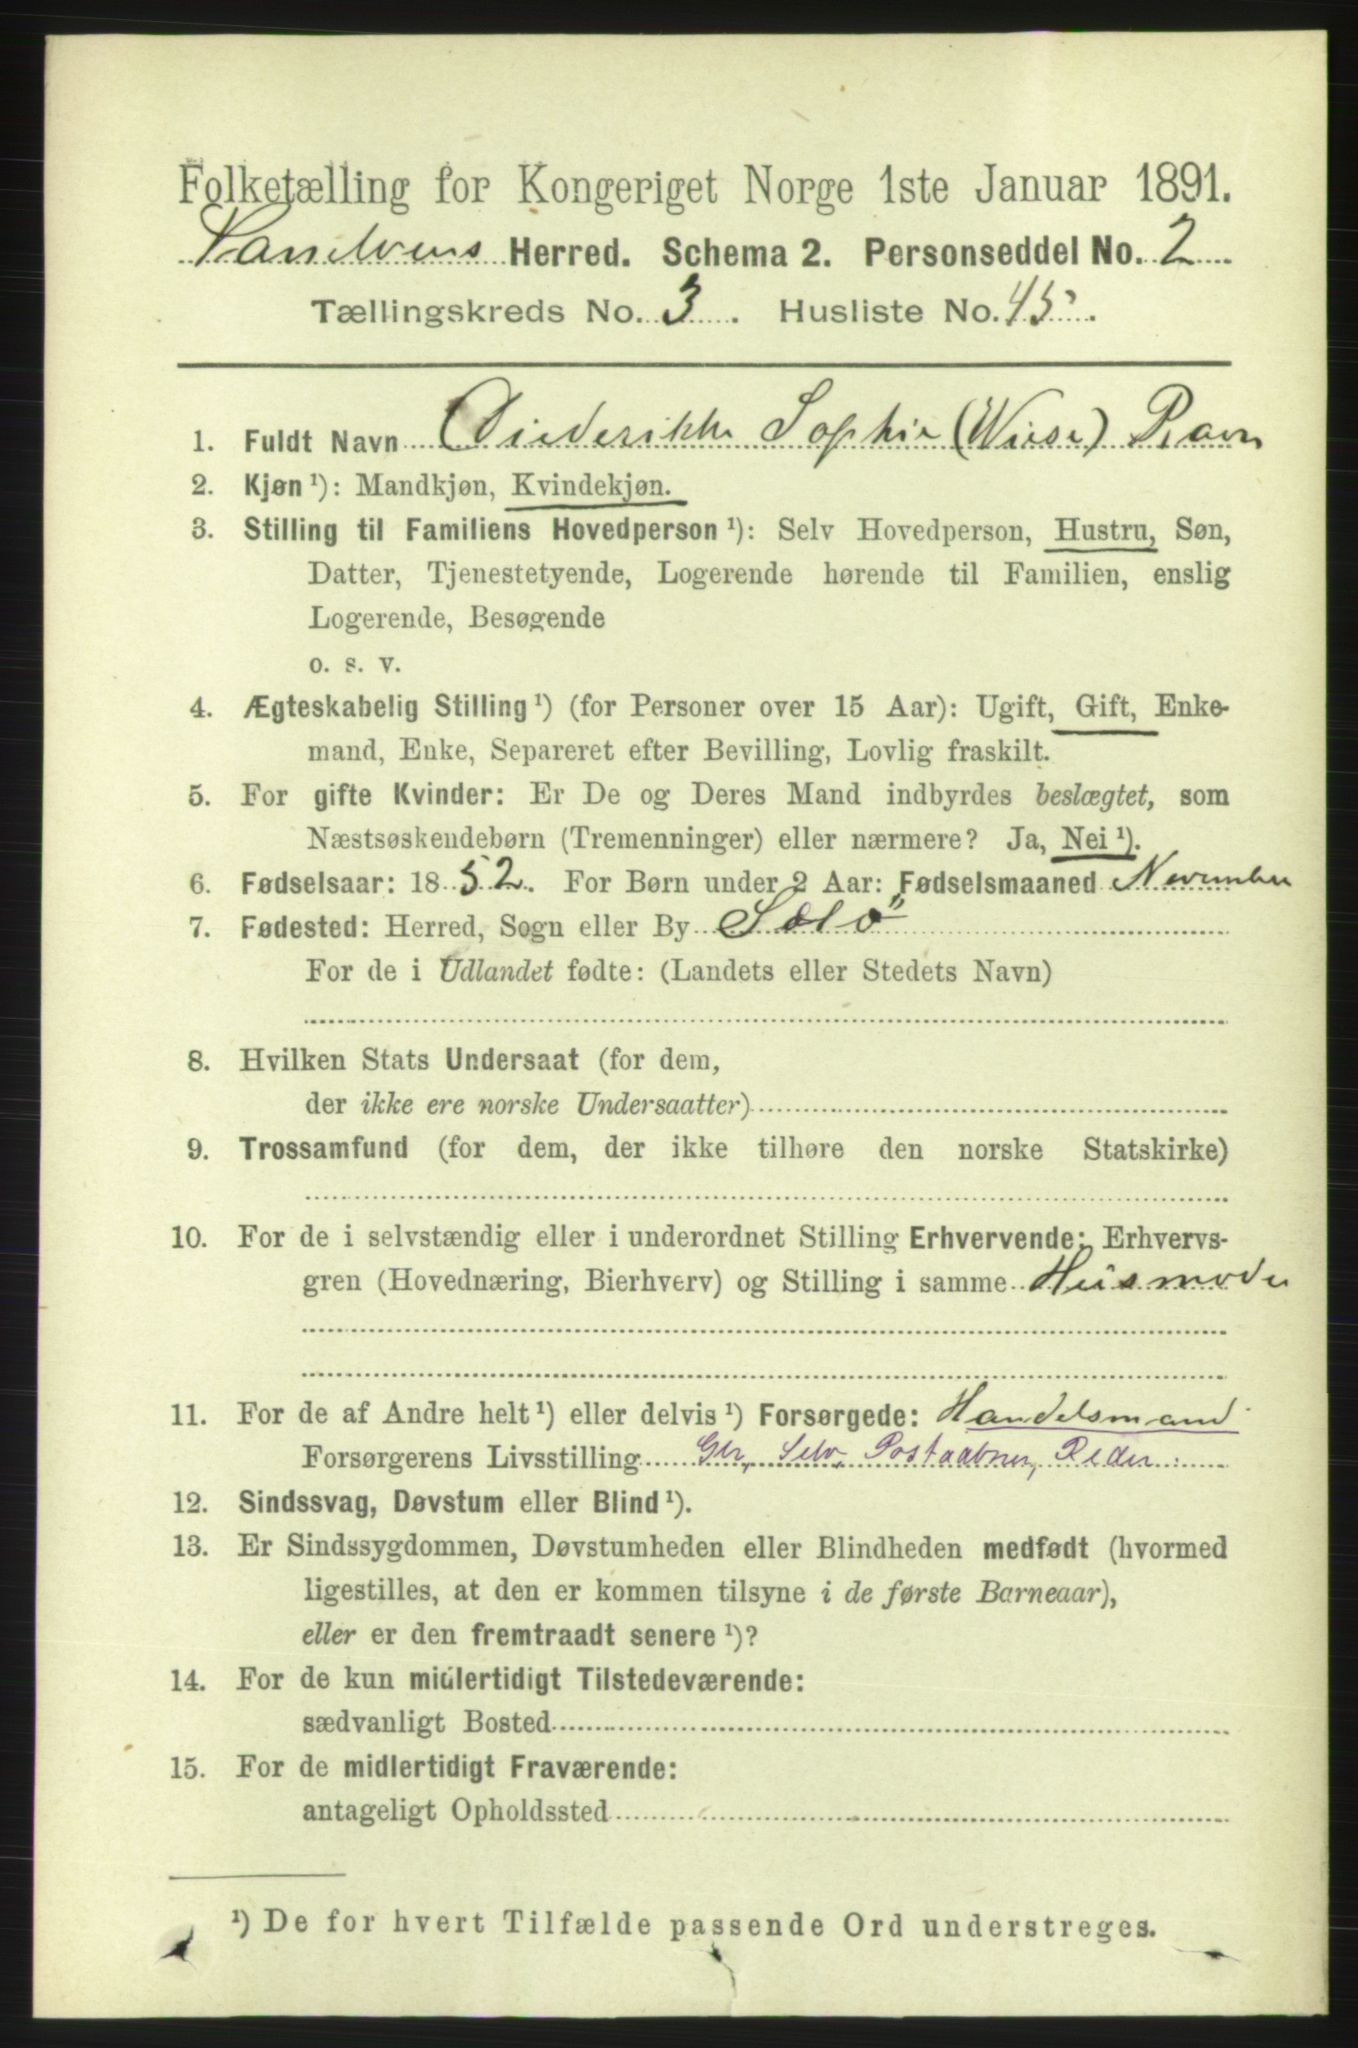 Folketælling for Kongeriget Norge 1ste Januar 1891.
Herred. Schema 2. Personseddel No. 2
Tællingskreds No. 3. Husliste No. 45.
1. Fuldt Navn Diederikke Sophie (Wiese) Ravn
2. Kjøn ¹): Mandkjøn, Kvindekjøn.
3. Stilling til Familiens Hovedperson ¹): Selv Hovedperson, Hustru, Søn,
Datter, Tjenestetyende, Logerende hørende til Familien, enslig
Logerende, Besøgende
o. s. v.
4. Ægteskabelig Stilling ¹) (for Personer over 15 Aar): Ugift, Gift, Enke-
mand, Enke, Separeret efter Bevilling, Lovlig fraskilt.
5. For gifte Kvinder: Er De og Deres Mand indbyrdes beslægtet, som
Næstsøskendebørn (Tremenninger) eller nærmere? Ja, Nei ¹).
6. Fødselsaar: 1852. For Børn under 2 Aar: Fødselsmaaned November
7. Fødested: Herred, Sogn eller By
For de i Udlandet fødte: (Landets eller Stedets Navn)
8. Hvilken Stats Undersaat (for dem,
der ikke ere norske Undersaatter)
9. Trossamfund (for dem, der ikke tilhøre den norske Statskirke)
10. For de i selvstændig eller i underordnet Stilling Erhvervende: Erhvervs-
gren (Hovednæring, Bierhverv) og Stilling i samme Husmoder
11. For de af Andre helt ¹) eller delvis ¹) Forsørgede: Handelsmand
Forsørgerens Livsstilling Selv. Postaabner, Reder
12. Sindssvag, Døvstum eller Blind ¹).
13. Er Sindssygdommen, Døvstumheden eller Blindheden medfødt (hvormed
ligestilles, at den er kommen tilsyne i de første Barneaar),
eller er den fremtraadt senere ¹)?
14. For de kun midlertidigt Tilstedeværende:
sædvanligt Bosted
15. For de midlertidigt Fraværende:
antageligt Opholdssted
¹) De for hvert Tilfælde passende Ord understreges.